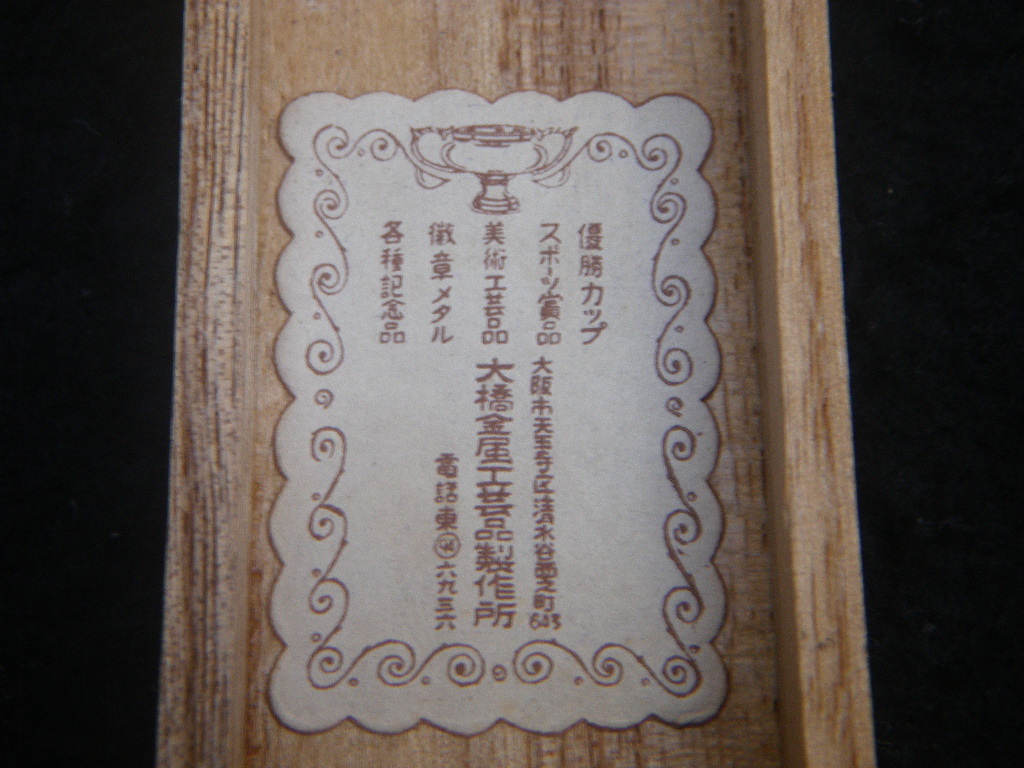 優勝カップ
スポーツ賞品
美術工芸品
徽章メタル
各種記念品
大阪市天王寺区清水谷西之町643
大橋金属工芸品製作所
電話東 六九三六